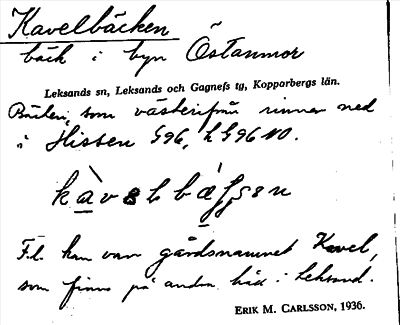 Kavelbäcken
bäck i byn Östanmor
Leksands sn, Leksands och Gagnefs tg, Kopparbergs län.
Bäcken, som västerifrån rinner ned
i Hissen G96, LG96 NO.
F.l. kan vara gårdsnamnet Kavel,
som finns på andra håll i Leksand.
ERIK M. CARLSSON, 1936.